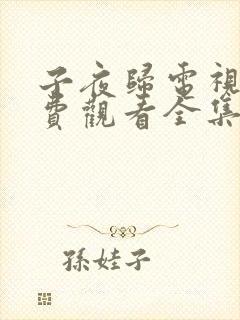 子夜歸電視
費觀看全集
孫娃子